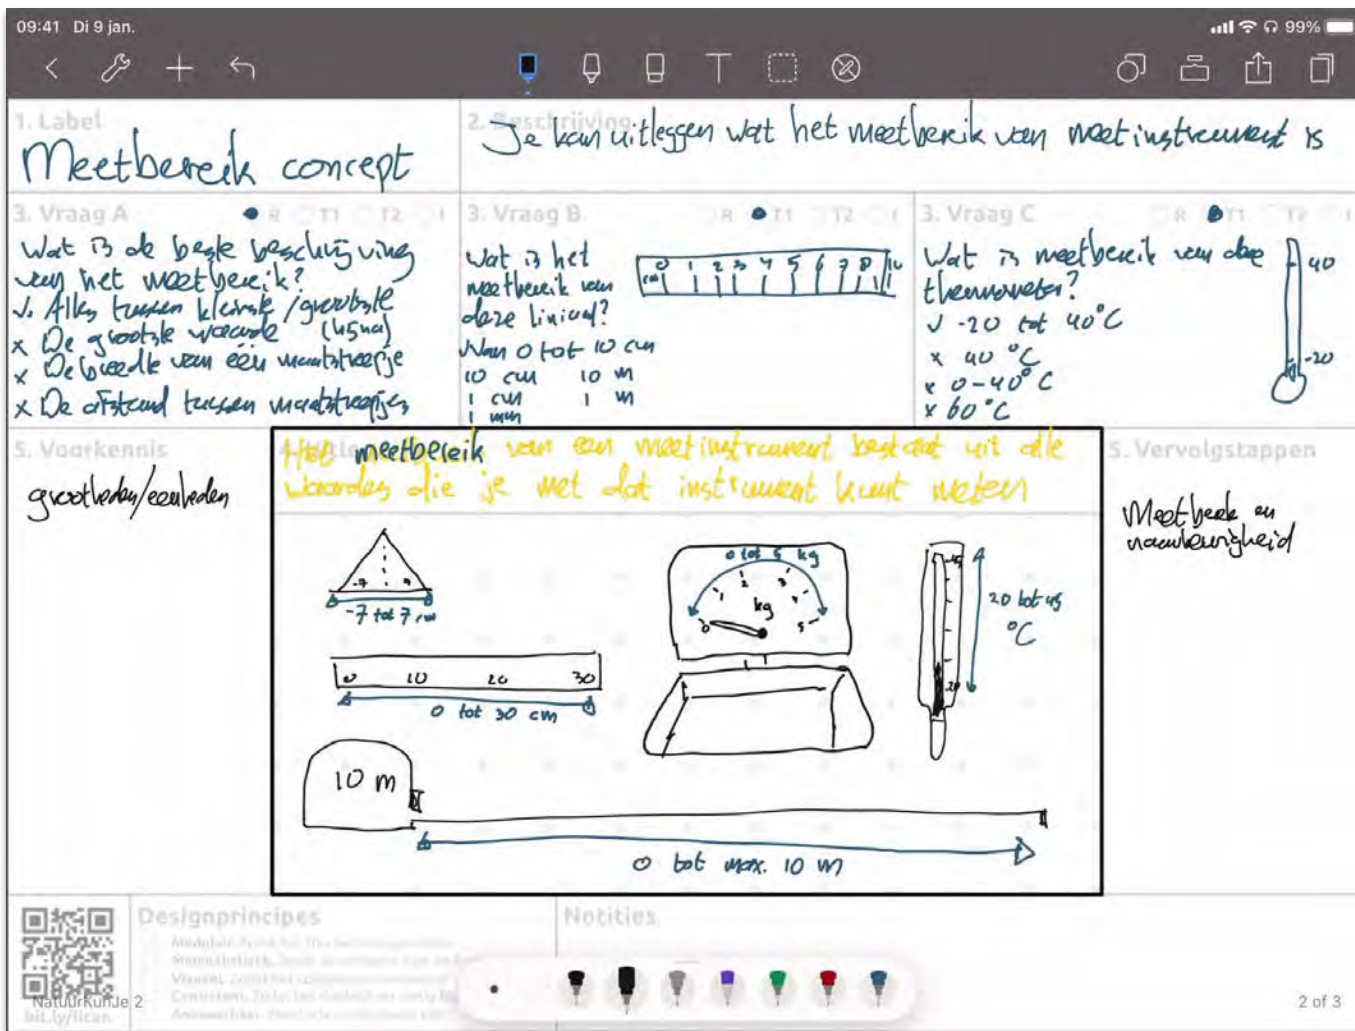 09:41 Di 9 jan.
99%
1. Label
Meetbereik concept
2. Beschrijving
Je kan uitleggen wat het meetbereik van meetinstrument is
3. Vraag A
R T1 T2 I
Wat is de beste beschrijving
van het meetbereik?
√. Alles tussen kleinste/grootste
x De grootste waarde
x De breedte van één maatstreepje
x De afstand tussen maatstreepjes
3. Vraag B
R T1 T2 I
Wat is het
meetbereik van
deze liniaal?
Van 0 tot 10 cm
10 cm 10 m
1 cm 1 m
1 mm
cm 0 1 2 3 4 5 6 7 8 10
3. Vraag C
R T1 T2 I
Wat is meetbereik van deze
thermometer?
√ -20 tot 40°C
x 40 °C
x 0-40°C
x 60°C
40
-20
5. Voorkennis
grootheden/eenheden
Het meetbereik van een meetinstrument bestaat uit alle
waardes die je met dat instrument kunt meten
-7 7
-7 tot 7 cm
0 10 20 30
0 tot 30 cm
0 tot 5 kg
0 1 2 3 4 5
kg
45
20
20 tot 45
°C
10 m
0 tot max. 10 m
5. Vervolgstappen
Meetbereik en
nauwkeurigheid
Designprincipes
Notities
NatuurkunJe 2
bit.ly/lican
2 of 3